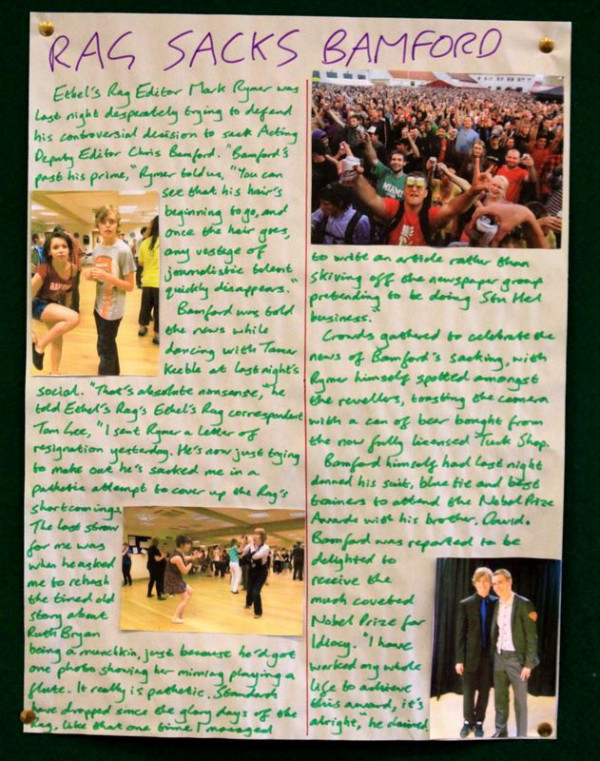 RAG SACKS BAMFORD
Ethel's Rag Editor Mark Rymer was
last night desperately trying to defend
his controversial decision to sack Acting
Deputy Editor Chris Bamford. "Bamford's
past his prime," Rymer told us, "You can
see that his hair's
beginning to go, and
once the hair goes,
any vestige of
journalistic talent
quickly disappears."
Bamford was told
the news while
dancing with Tamar
Keeble at last night's
social. "That's absolute nonsense," he
told Ethel's Rag's Ethel's Rag correspondent
Tom Lee, "I sent Rymer a letter of
resignation yesterday. He's now just trying
to make out he's sacked me in a
pathetic attempt to cover up the Rag's
shortcomings.
The last straw
for me was
when he asked
me to rehash
the tired old
story about
Ruth Bryan
being a munchkin, just because he'd got
one photo showing her miming playing a
flute. It really is pathetic. Standards
have dropped since the glory days of the
Rag, like that one time I managed
to write an article rather than
skiving off the newspaper group
pretending to be doing Stu Hel
business."
Crowds gathered to celebrate the
news of Bamford's sacking, with
Rymer himself spotted amongst
the revellers, toasting the camera
with a can of beer bought from
the now fully licensed Tuck Shop.
Bamford himself had last night
donned his suit, blue tie and best
trainers to attend the Nobel Prize
Awards with his brother, David.
Bamford was reported to be
delighted to
receive the
much coveted
Nobel Prize for
Idiocy. "I have
worked my whole
life to achieve
this award, it's
alright," he claimed.
MIAMI